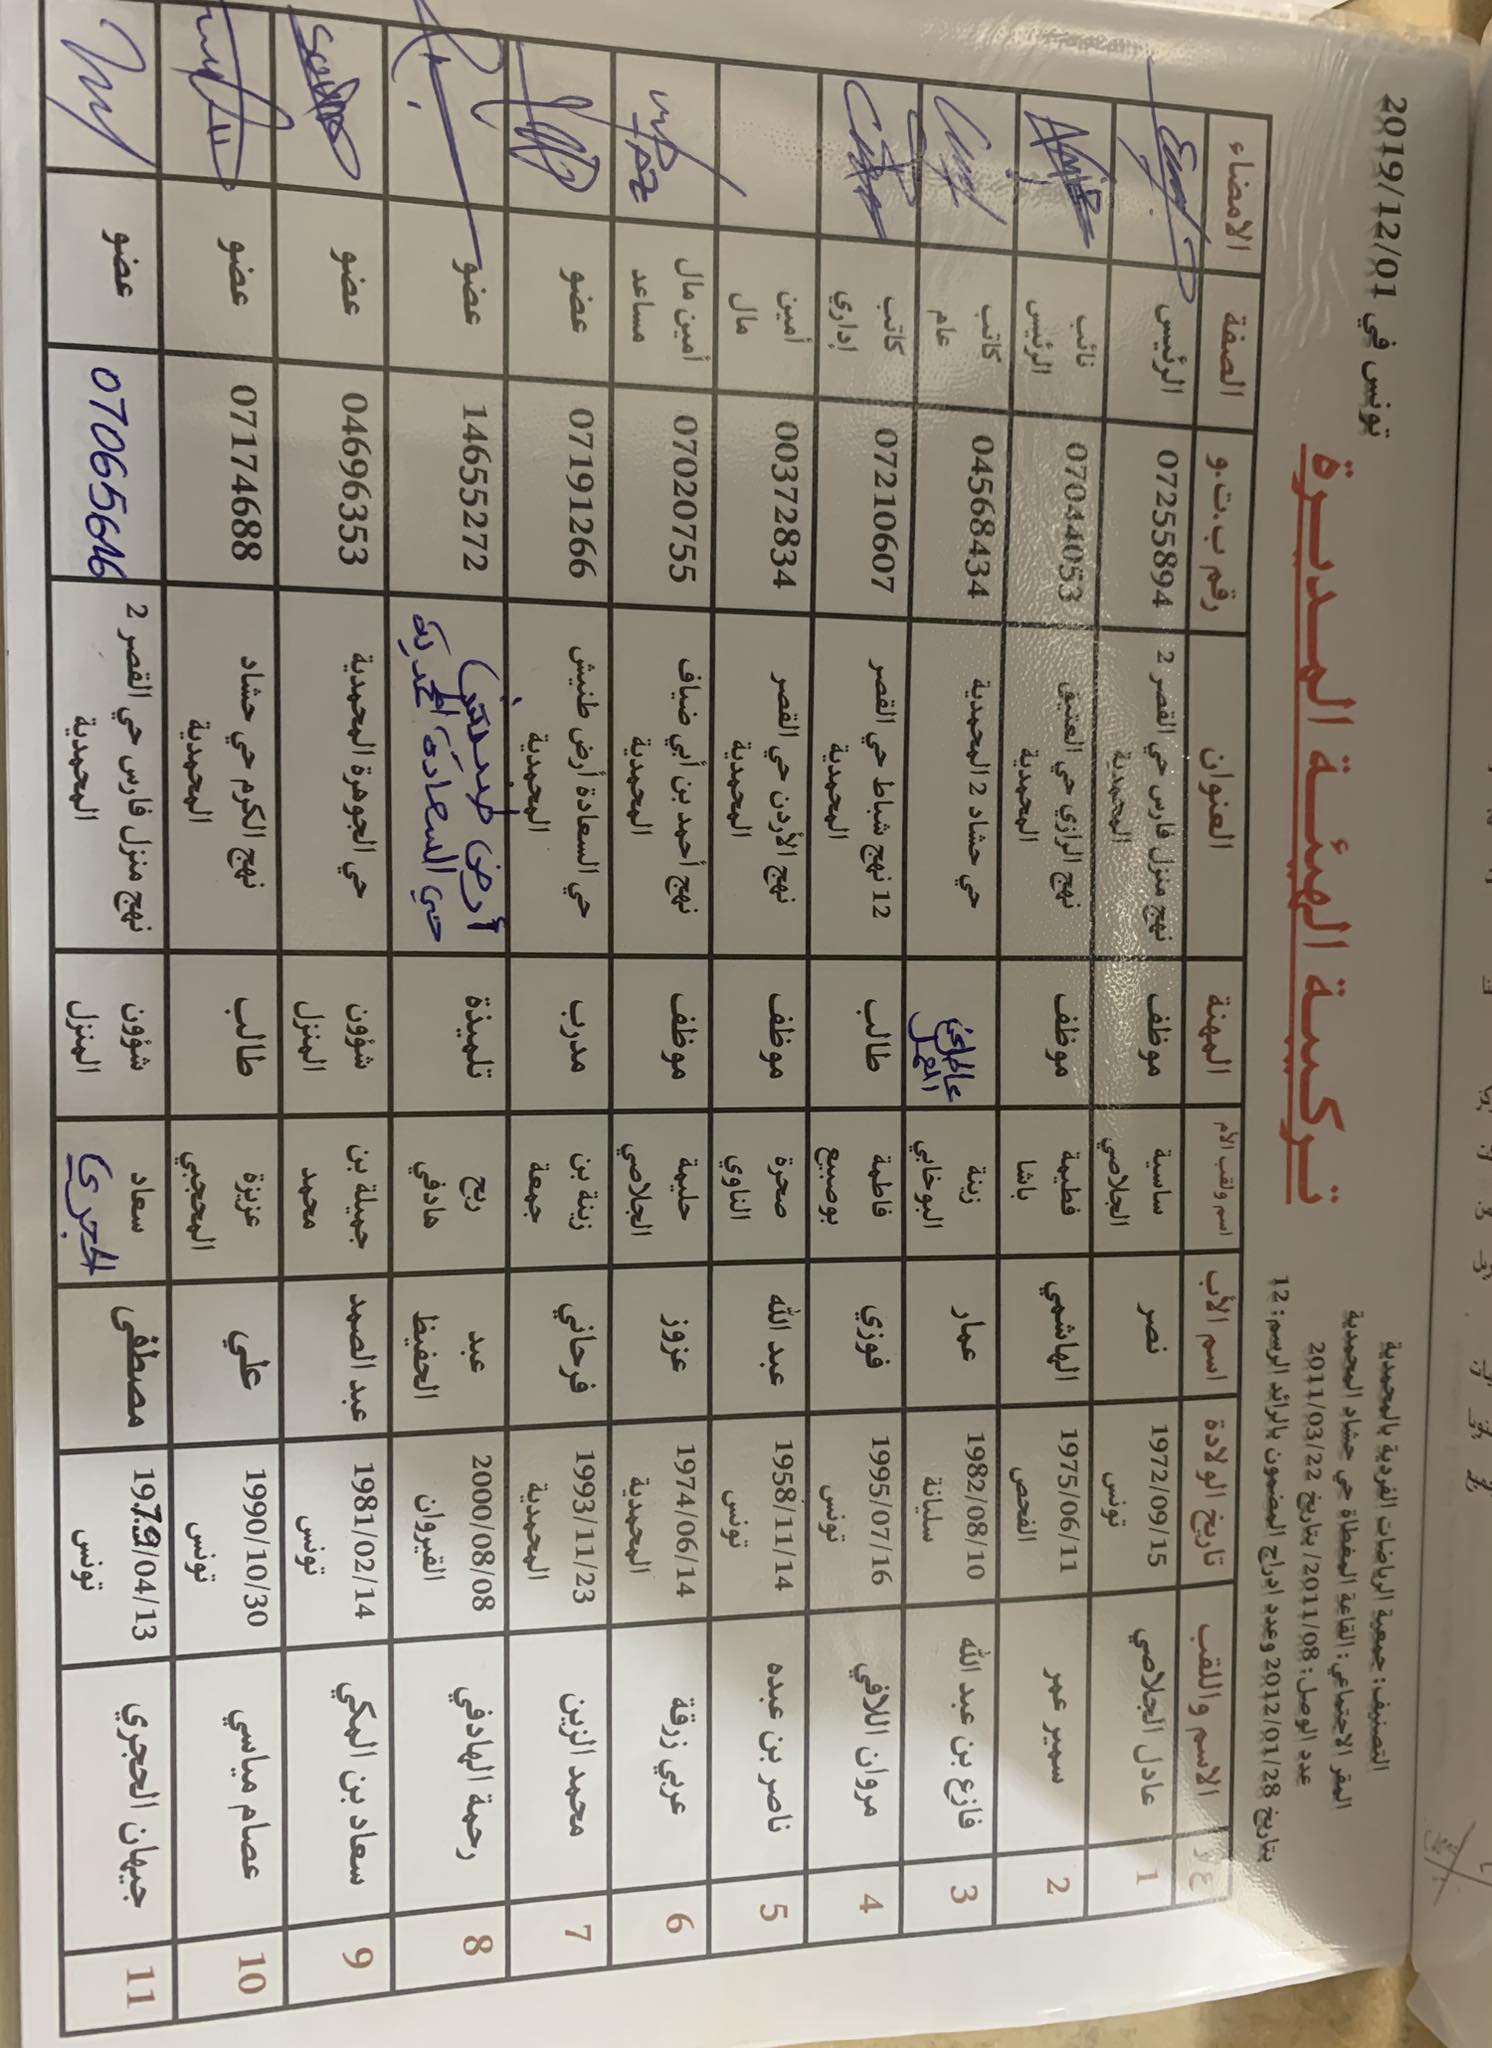 التصنيف: جمعية الرياضات الفردية بالمحمدية
المقر الاجتماعي: القاعة المغطاة حي حشاد المحمدية
عدد الوصل: 2011/08/ بتاريخ 2011/03/22
بتاريخ 2012/01/28 وعدد ادراج المضمون بالرائد الرسم: 12
تونس في 2019/12/01
تركيبة الهيئة المديرة
ع ر الاسم واللقب تاريخ الولادة اسم الأب اسم ولقب الأم المهنة العنوان رقم ب.ت.و الصفة الامضاء
1 عادل الجلاصي 1972/09/15 تونس نصر ساسية الجلاصي موظف نهج منزل فارس حي القصر 2 المحمدية 07255894 الرئيس
2 سمير عمر 1975/06/11 الفحص الهاشمي فطيمة باشا موظف نهج الرازي حي العتيق المحمدية 07044053 نائب الرئيس
3 فازع بن عبد الله 1982/08/10 سليانة عمار زينة البوخابي حي حشاد 2 المحمدية 04568434 كاتب عام
4 مروان اللافي 1995/07/16 تونس فوزي فاطمة بوصبيع طالب 12 نهج شباط حي القصر المحمدية 07210607 كاتب إداري
5 ناصر بن عبده 1958/11/14 تونس عبد الله صحرة الناوي موظف نهج الأردن حي القصر المحمدية 00372834 أمين مال
6 عربي زرقة 1974/06/14 المحمدية عزوز حليمة الجلاصي موظف نهج أحمد بن أبي ضياف المحمدية 07020755 أمين مال مساعد
7 محمد الزين 1993/11/23 المحمدية فرحاني زينة بن جمعة مدرب حي السعادة أرض طنيش المحمدية 07191266 عضو
8 رحمة الهادفي 2000/08/08 القيروان عبد الحفيظ ربح هادفي تلميذة أرض طنيش حي السعادة المحمدية 14655272 عضو
9 سعاد بن المكي 1981/02/14 تونس عبد الصمد جميلة بن محمد شؤون المنزل حي الجوهرة المحمدية 04696353 عضو
10 عصام مياسي 1990/10/30 تونس علي عزيزة المحجبي طالب نهج الكرم حي حشاد المحمدية 07174688 عضو
11 جيهان الحجري 1979/04/13 تونس مصطفى سعاد الحجري شؤون المنزل نهج منزل فارس حي القصر 2 المحمدية 07065616 عضو